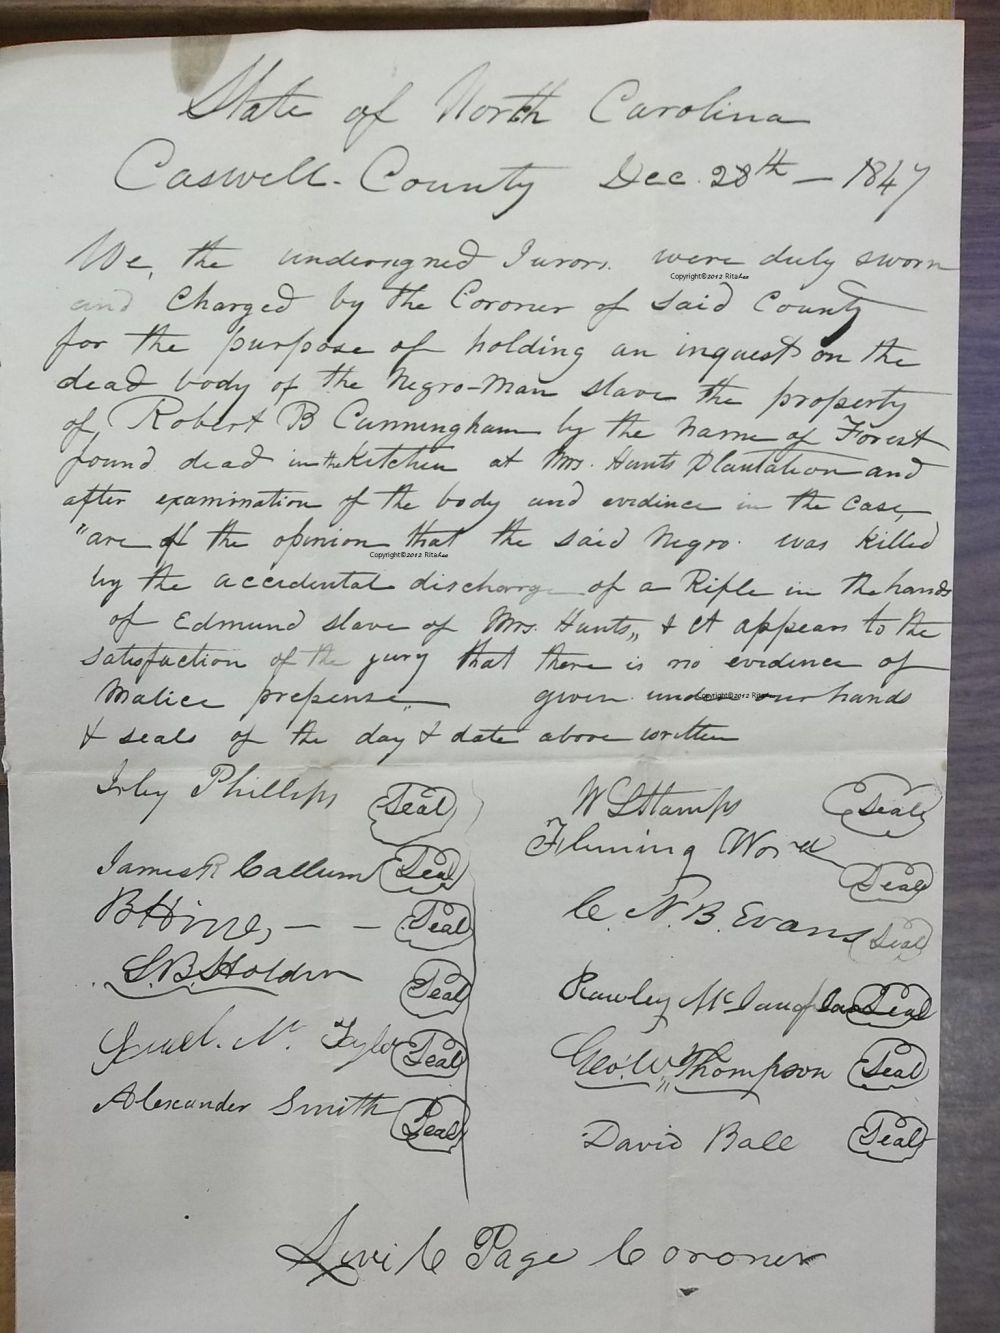 State of North Carolina
Caswell - County Dec. 28th — 1847
We, the undersigned Jurors. were duly sworn
Copyright©2012 RitaLee
and Charged by the Coroner of said County
for the purpose of holding an inquest on the
dead body of the Negro-Man slave the property
of Robert B Cunningham by the name of Forest
found dead in the Kitchen at Mrs. Hunts Plantation and
after examination of the body and evidence in the case,
"are of the opinion that the said Negro. was killed
Copyright©2012 RitaLee
by the accidental discharge of a Rifle in the hands
of Edmund slave of Mrs. Hunts,, & it appears to the
satisfaction of the jury that there is no evidence of
Malice prepense,, given under our hands
Copyright©2012 RitaLee
& seals of the day & date above written
Irby Phillips Seal
James R Callum Seal
B Hines, — — Seal
S. B. Holden Seal
N. Taylor Seal
Alexander Smith Seal
W S Stamps Seal
Fleming Word Seal
C. N. B. Evans Seal
Rawley Seal
Geo: W,, Thompson Seal
David Ball Seal
Levi C Page Coroner